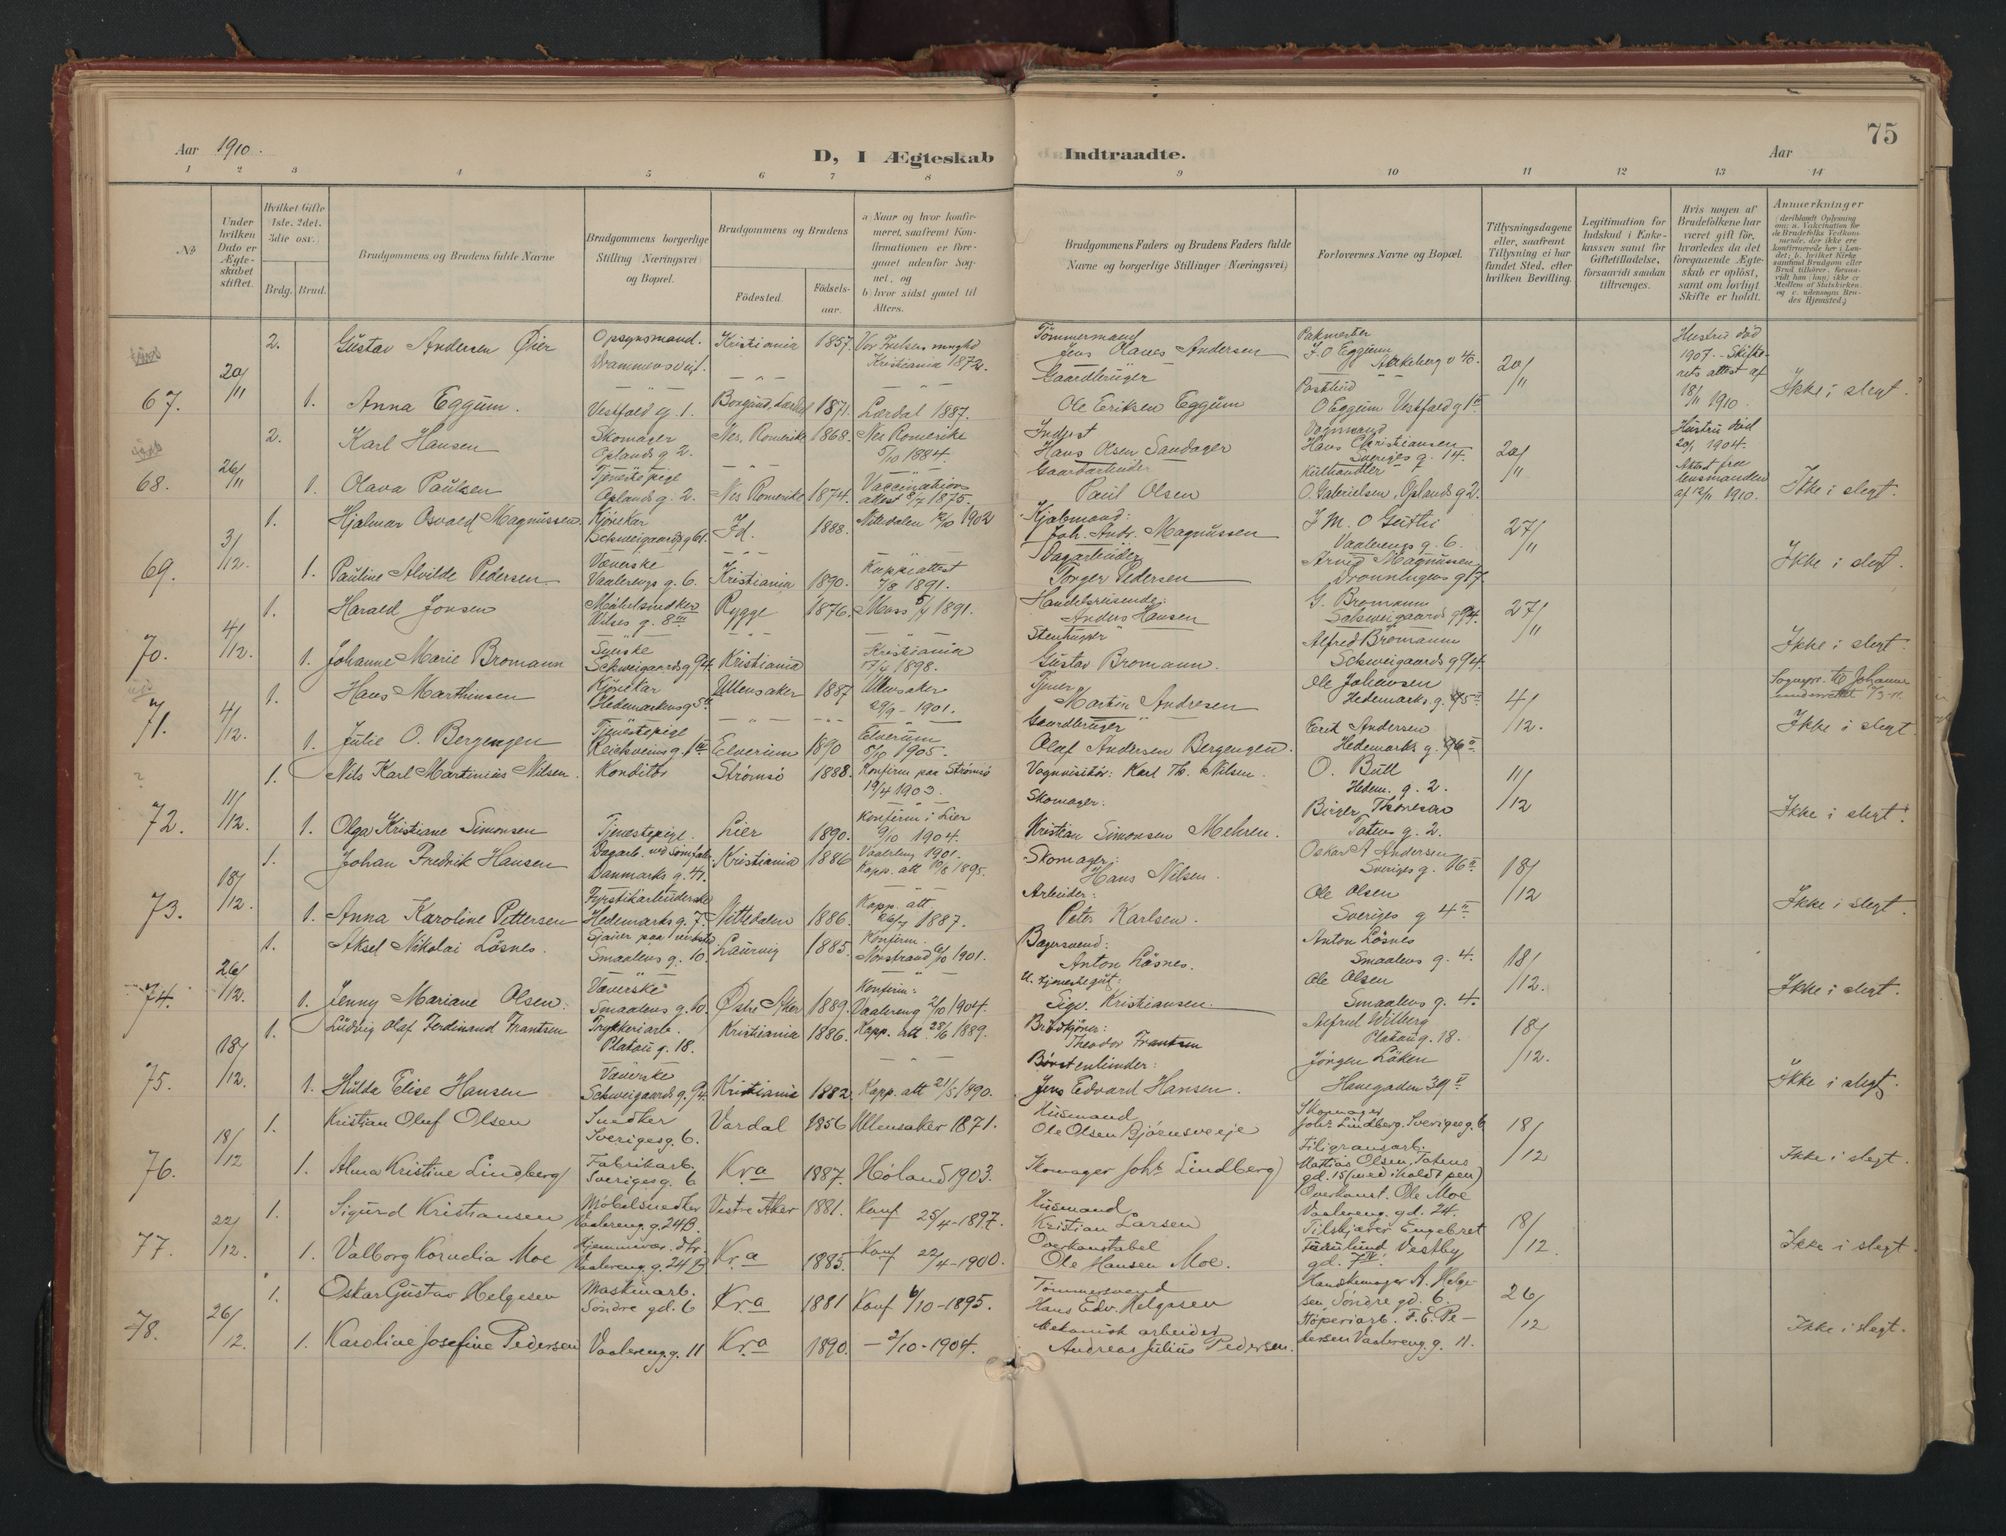 75
Aar 1910.
D, I Ægteskab Indtraadte.
Aar
1 2 3 4 5 6 7 8 9 10 11 12 13 14
No
Under hvilken Dato er Ægteskabet stiftet.
Hvilket Gifte 1ste, 2det, 3die osv.
Brdg. Brud.
Brudgommens og Brudens fulde Navne
Brudgommens borgerlige Stilling (Næringsvei) og Bopæl.
Brudgommens og Brudens
Fødested. Fødselsaar.
a) Naar og hvor konfirmeret, saafremt Konfirmationen er foregaaet udenfor Sognet, og
b) hvor sidst gaaet til Alters.
Brudgommens Faders og Brudens Faders fulde Navne og borgerlige Stillinger (Næringsvei)
Forlovernes Navne og Bopæl.
Tillysningsdagene eller, saafremt Tillysning ei har fundet Sted, efter hvilken Bevilling.
Legitimation for Indskud i Enkekassen samt for Giftetilladelse, forsaavidt saadan tiltrænges.
Hvis nogen af Brudefolkene har været gift før, hvorledes da det foregaaende Ægteskab er opløst, samt om lovligt Skifte er holdt.
Anmerkninger
67. 20/11 2. Gustav Andersen Øier Opsynsmand. Drammensvei 1. Kristiania 1857. Vor Frelsers Kristiania 1872. Tømmermand Jens Andersen Pakmester J. O Eggum Aakeberg v 40. 20/11 Hustru død 1907 - Skifterets attest af 18/11 1910. Ikke i slegt.
1. Anna Eggum. Vestfold g. 1. Borgund, Lærdal 1871. Lærdal 1887. Gaardbruger Ole Eriksen Eggum Postbud O Eggum Vestfold g 1 III
68. 26/11 2. Karl Hansen Skomager Oplands g 2. Nes, Romerike 1868. Nes Romerike 5/10 1884. Inderst Hans Olsen Sandager Vognmand Hans Christiansen Sveriges g. 14. 20/11 Hustru død 20/1 1904. Attest fra lensmanden af 12/11 1910. Ikke i slegt.
1. Olava Paulsen Tjenestepige Oplands g. 2. Nes Romerike 1874. Vaccinations attest 8/7 1875. Gaardarbeider Paul Olsen Kulhandler O. Gabrielsen, Oplands g 2.
69. 3/12 1. Hjalmar Osvald Magnussen Kjørekar Schweigaards g 61. Id. 1888. Nittedalen 12/10 1902 Joh. Andr. Magnussen J. M. O Guthi Vaalerengs g. 6. 27/11 Ikke i slegt.
1. Pauline Alvilde Pedersen Væverske Vaalerengs g. 6. Kristiania 1890. Koppeattest 7/8 1891. Dagarbeider Torger Pedersen Arvid Magnussen Dronningens g 17.
70. 4/12 1. Harald Jonsen Møbelsnedker Nilses g. 8 III Rygge 1876. Moss 5/4 1891. Handelsreisende: Anders Hansen G. Bromann Schweigaards g 94. 27/11 Ikke i slegt.
1. Johanne Marie Bromann Syerske Schweigaards g 94. Kristiania Kristiania 17/4 1898. Stenhugger Gustav Bromann. Alfred Bromann Schweigaards g 94
71. 4/12 1. Hans Marthinsen Kjørekar Hedemarkens g 5 II Ullensaker 1887 Ullensaker 29/9 - 1901. Tjener Martin Andresen Ole Johansen Hedemarks g. 95 II 4/12. Ikke i slegt.
1. Julie O. Bergengen Tjenestepige Elverum 1890 Elverum 8/10 1905. Gaardbruger Olaf Andersen Bergengen. Erik Andersen Hedemarks g.
72. 11/12. 1. Nils Karl Martinius Nilsen. Konditor Strømsø 1888. Konfirm paa Strømsø 19/4 1903. Vognvisitør: Karl Th. Nilsen. O. Bull Hedem. g. 2. 11/12 Ikke i slegt.
1. Olga Kristiane Simonsen Tjenestepige. Lier 1890. Konfirm i Lier 9/10 1904. Skomager. Kristian Simonsen Mehren. Birger Thoresen Totens g. 2.
73. 18/12. 1. Johan Fredrik Hansen Danmarks g. 41. Kristiania 1886 Vaalereng 1901. Kopp. att 19/8 1895. Skomager: Hans Nilsen. Oskar A Andersen Sveriges g. 16 II 18/12 Ikke i slegt.
1. Anna Karoline Pettersen Fyrstikarbeiderske Hedemarks g. 7. Nittedalen 1886. Kopp. att. 26/7 1887. Arbeider: Peter Karlsen. Ole Olsen Sveriges g 4 II
74. 26/12. 1. Aksel Nikolai Løsnes. Sjauer paa Smaalens g. 10. Laurvig 1885. Konfirm. Norstrand 6/10 1901. Bagersvend: Anton Løsnes. Anton Løsnes Smaalens g. 4. 18/12. Ikke i slegt.
1. Jenny Mariane Olsen. Væverske Smaalens g. 10. Østre Aker 1889. Konfirm: Vaalereng 2/10 1904. Sigv. Kristiansen. Ole Olsen Smaalens g. 4.
75. 18/12. 1. Ludvig Olaf Ferdinand Frantsen Trykkeriarb. Platou g. 18. Kristiania 1886. Kopp. att 28/6 1889. Brødkjører: Theodor Frantsen Alfred Wilberg Platou g. 18. 18/12. Ikke i slegt.
1. Hulda Elise Hansen Væverske Schweigaards g. 94. Kristiania 1882. Kopp. att 21/5 1890. Børstenbinder: Jens Edvard Hansen. Jørgen Løken Hausgaden 39 II
76. 18/12 1. Kristian Oluf Olsen Snedker Sveriges g. 6. Vardal 1856 Ullensaker 1871. Husmand Ole Olsen Bjørensveeje Skomager Johs Lindberg, Sveriges g. 6 18/12 Ikke i slegt.
1. Alma Kristine Lindberg Fabrikarb. Sveriges g. 6 Kra 1887. Høland 1903. Skomager Johs Lindberg Filigransarb. Mathias Olsen, Totens gd. 15
77. 22/12. 1. Sigurd Kristiansen Møbelsnedker Vaalereng g. 24 B. Vestre Aker 1881. Konf 25/4-1897. Husmand Kristian Larsen Overkonst. Ole Moe Vaalereng gd. 24. 18/12. Ikke i slegt.
1. Valborg Kornelia Moe Hjemmevær. dtr. Vaalereng g. 24 B Kra 1885. Konf 22/4-1900. Overkonstabel Ole Hansen Moe. Engebret Vestby gd. 7 IV.
78. 26/12. 1. Oskar Gustav Helgesen Maskinarb. Søndre gd. 6 Kra 1881 Konf 6/10-1895. Tømmersvend Hans Edv. Helgesen Handskemager A. Helgesen, Søndre gd. 6. 26/12 Ikke i slegt.
1. Karoline Josefine Pedersen Vaalereng g. 11 Kra 1890. — 2/10-1904. Mekanisk arbeider Andreas Julius Pedersen. Støperiarb. F. E. Pedersen Vaalereng g. 11.